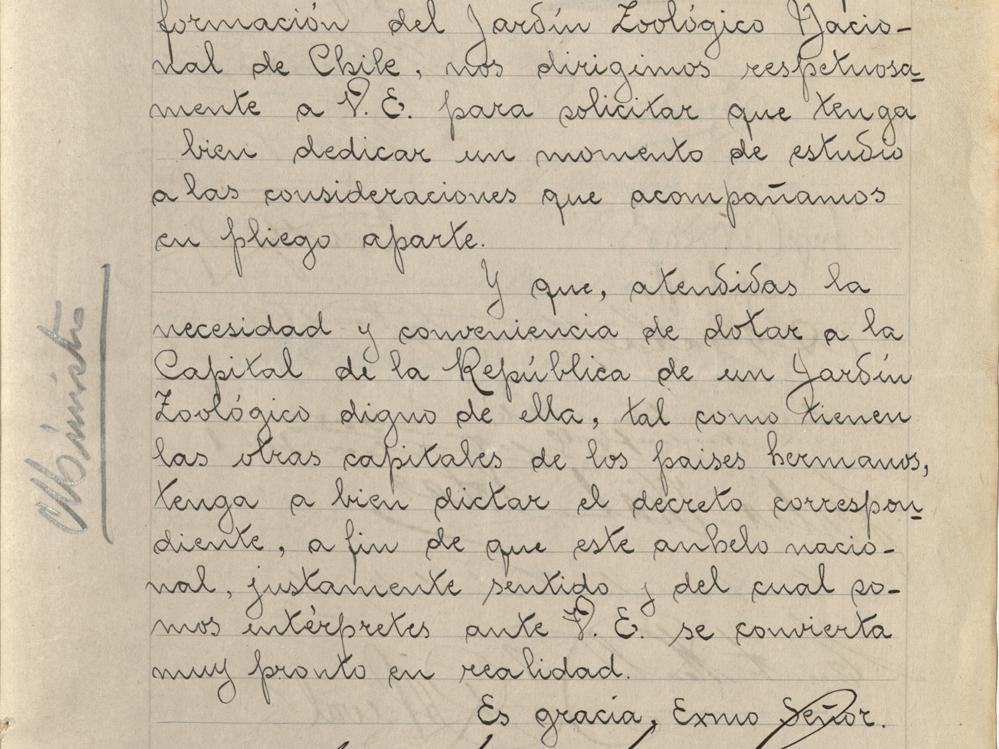 formación del Jardín Zoológico Nacio-
nal de Chile, nos dirigimos respetuosa-
mente a V. E. para solicitar que tenga
bien dedicar un momento de estudio
a las consideraciones que acompañamos
en pliego aparte.
Y que, atendidas la
necesidad y conveniencia de dotar a la
Capital de la República de un Jardín
Zoológico digno de ella, tal como tienen
las otras capitales de los paises hermanos,
tenga a bien dictar el decreto correspon-
diente, a fin de que este anhelo nacio-
nal, justamente sentido y del cual so-
mos intérpretes ante V. E. se convierta
muy pronto en realidad.
Es gracia, Exmo Señor.
Ministro